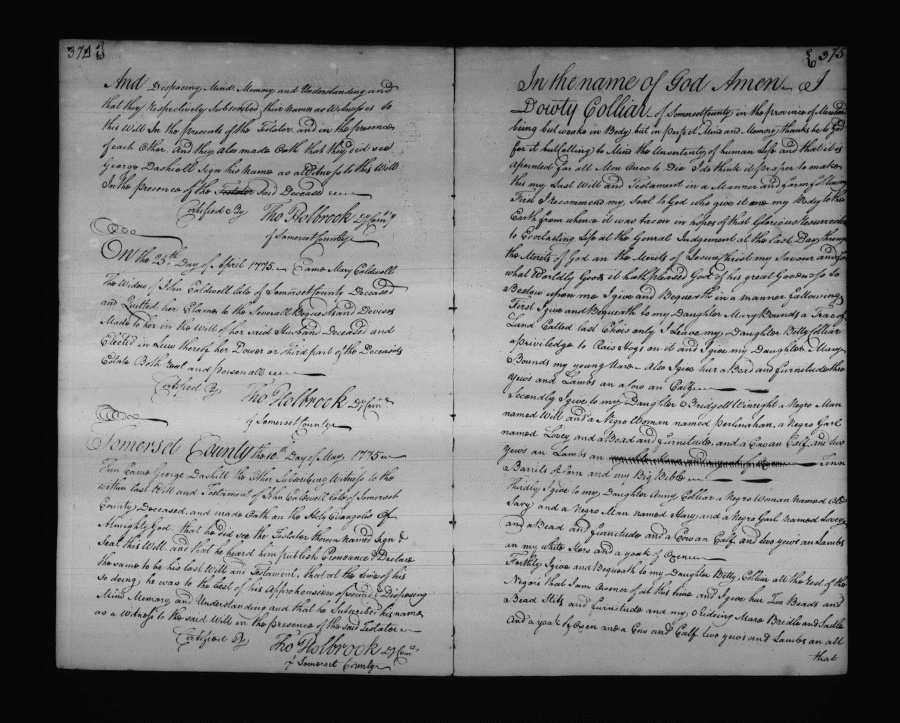 374
And Disposing Mind Memory and Understanding and
that they respectively Subscribed their names as Witnesses to
this Will In the presents of the Testator and in the presence
of each Other And they also made Oath that they did see
George Dashiell Sign his Name as a Witness to this Will
In the presence of the Testator Said Deceased
Certified By Tho Holbrook Dy Comy
of Somerset County
On the 25th Day of April 1775 Came Mary Caldwell
The Widow of John Caldwell late of Somerset County Deceased
and Quitted her Claime to the Severall Bequests and Devises
Made to her in the Will of her said Husband Deceased and
Elected in Lieu thereof her Dower or third part of the Deceaseds
Estate Both Real and personall
Certified By Tho Holbrook Dy Comy
of Somerset County
Somerset County the 10th Day of May 1775
Then Came George Dashiell the Other Subscribing Witness to the
within last Will and Testament of John Caldwell late of Somerset
County Deceased and made Oath on the Holy Evangelos of
Almighty God that he did see the Testator therein named Sign &
Seal this Will and that he heard him publish Pronounce & Declare
the same to be his last Will and Testament that at the time of his
so doing he was to the best of his Apprehension of sound & disposing
Mind Memory and Understanding and that he Subscribed his name
as a witness to the said Will in the presence of the said Testator
Certified By Tho Holbrook Dy Comy
of Somerset County
375
In the name of God Amen I
Dowty Colliar of Somerset County in the province of Maryland
being but weake in Body but in perfect Mind and Memory thanks be to God
for it but Calling to Mind the Uncertenty of human Life and that it is
apointed for all Men Once to Die I do think it proper to make
this my Last Will and Testament in a Manner and form following
First I recommend my Soal to God who give it and my Body to the
Earth from whence it was tacon in hopes of that Glorious Resurrection
to Everlasting Life at the Genral Judgement at the last Day through
the Merets of God an the Merets of Jesus Christ my Savour and for
what Worldly Goods it hath pleased God of his great Goodness to
Bestow upon me I give and Bequeath in a manner following
First I give and Bequeath to my Daughter Mary Bounds a Trac of
Land Called last Chois only I Leave my Daughter Betty Colliar
a priviledge to Rais Hogs on it and I give my Daughter Mary
Bounds my young Mare Also I give hur a Bead and furnitude three
yews and Lambs an a Cow an Calf
Secondly I give to my Daughter Bridgett Winright a Negro Man
named Will and a Negro Woman named Perlinahan, a Negro Garl
named Lovey and a Bead and furnitude, and a Cow an Calf and two
yews an Lambs an Tenn
a Barils of Corn and my Big Bible
Thirdly I give to my Daughter Anny Colliar a Negro Woman named
Sary and a Negro Man named Harry and a Negro Garl named Lovey
and a Bead and furnitude and a Cow an Calf and two yews an Lambs
an my white Mare and a yoak of Oxen
Forthly I give and Bequeath to my Daughter Betty Colliar all the Rest of the
Negros that I am Owner of at this time and I give hur Two Beads and
a Bead Stits and furnitude and my Rideing Mare Bridle and Saddle
And a yoak of Oxen and a Cow and Calf two yews and Lambs an all
that